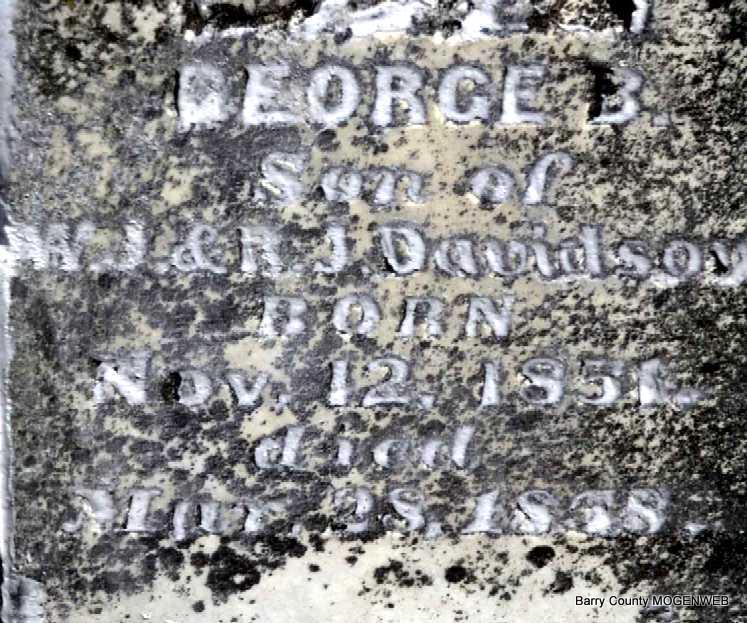 GEORGE B.
Son of
W.J. & R.J. Davidson
BORN
Nov. 12, 1851.
died
Mar. 28, 1858.
Barry County MOGENWEB